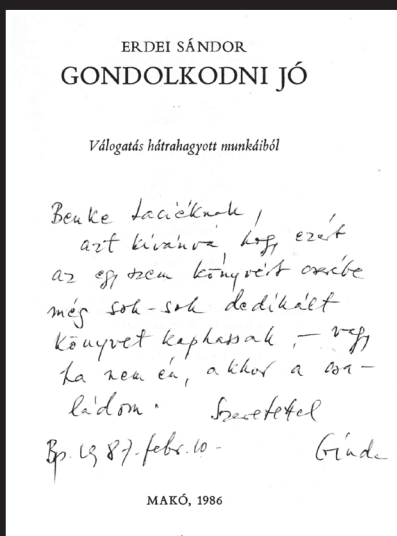 ERDEI SÁNDOR
GONDOLKODNI JÓ
Válogatás hátrahagyott munkáiból
Benke Laciéknak,
azt kívánva hogy ezért
az egy szem könyvért cserébe
még sok-sok dedikált
könyvet kaphassak, – vagy
ha nem én, akkor a csa-
ládom. Szeretettel
Bp. 1987. febr. 10 - Ginda
MAKÓ, 1986